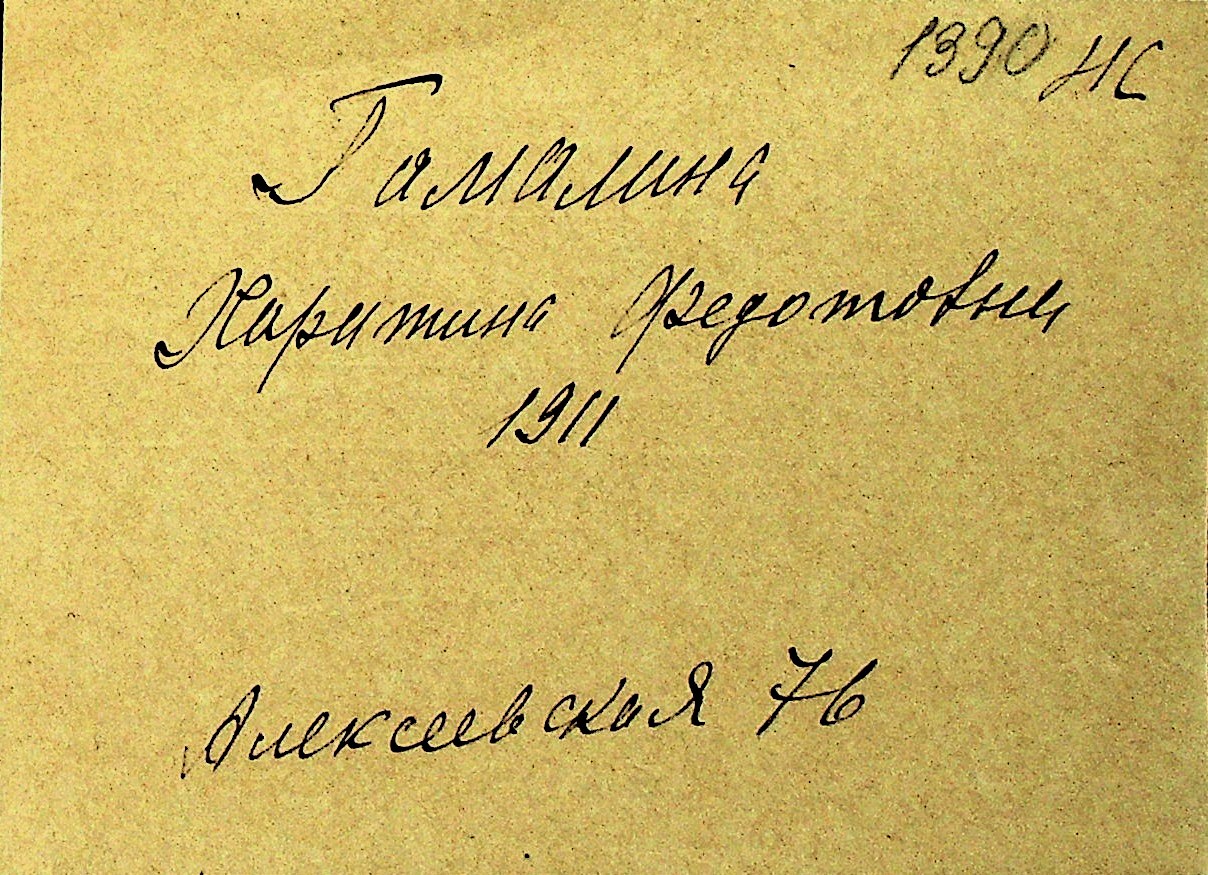 1390 НС
Гамалина
Харитина Федотовна
1911
Алексеевская 76